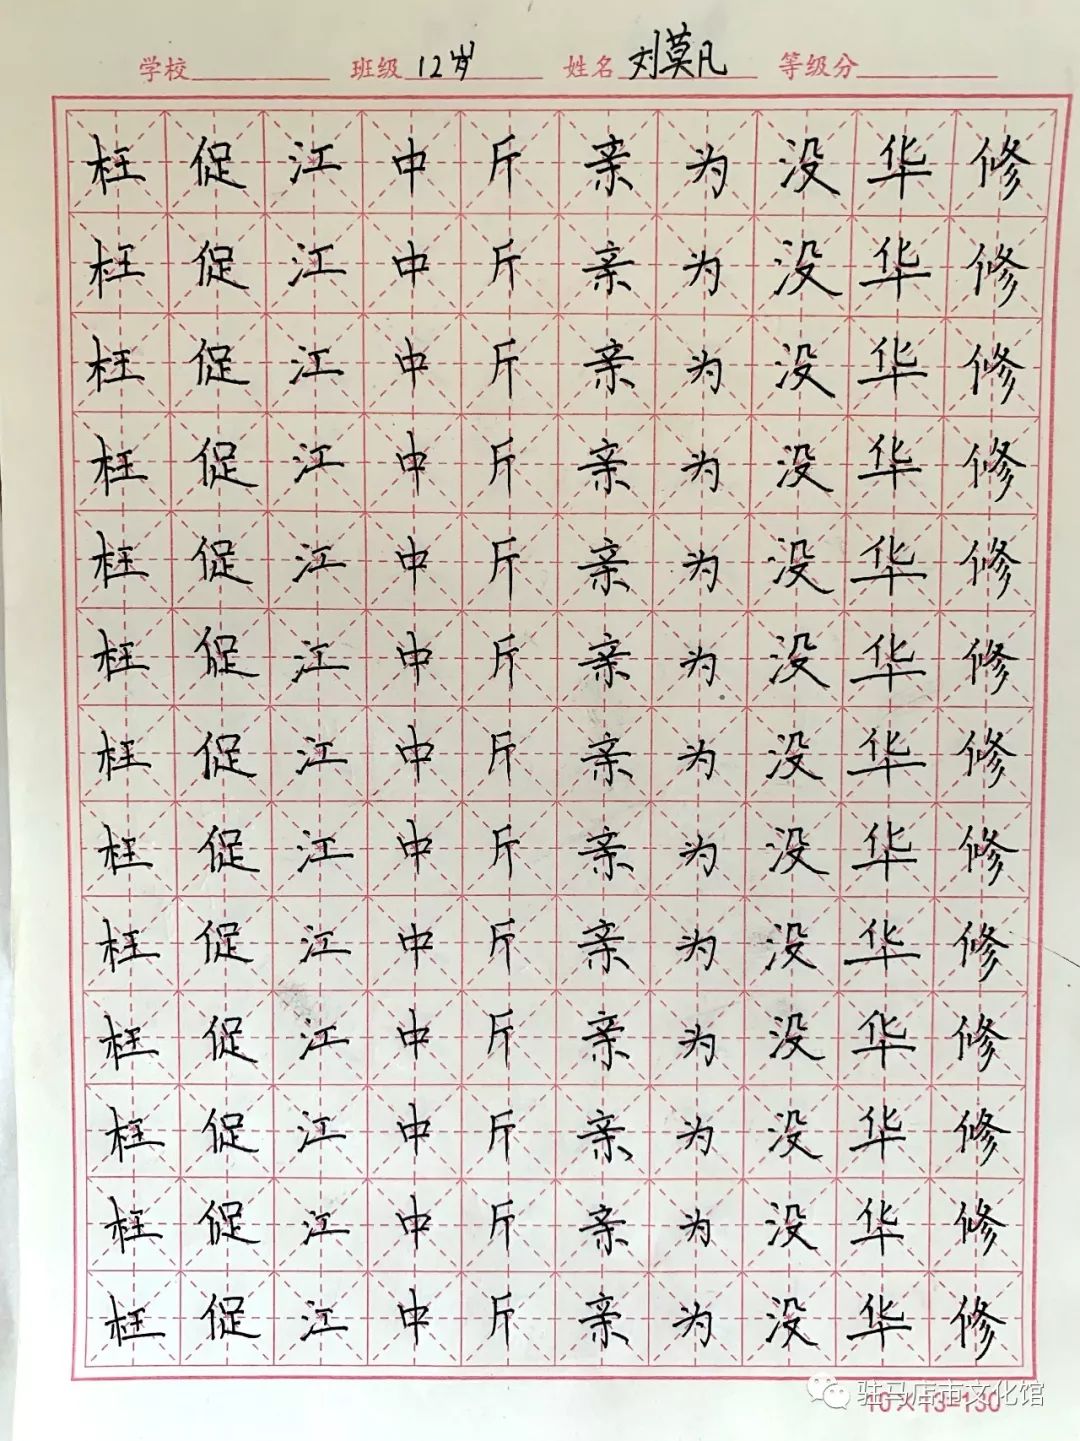 学校 班级 12岁 姓名 刘莫凡 等级分
枉 促 江 中 斤 亲 为 没 华 修
枉 促 江 中 斤 亲 为 没 华 修
枉 促 江 中 斤 亲 为 没 华 修
枉 促 江 中 斤 亲 为 没 华 修
枉 促 江 中 斤 亲 为 没 华 修
枉 促 江 中 斤 亲 为 没 华 修
枉 促 江 中 斤 亲 为 没 华 修
枉 促 江 中 斤 亲 为 没 华 修
枉 促 江 中 斤 亲 为 没 华 修
枉 促 江 中 斤 亲 为 没 华 修
枉 促 江 中 斤 亲 为 没 华 修
枉 促 江 中 斤 亲 为 没 华 修
枉 促 江 中 斤 亲 为 没 华 修
驻马店市文化馆
10×13=130